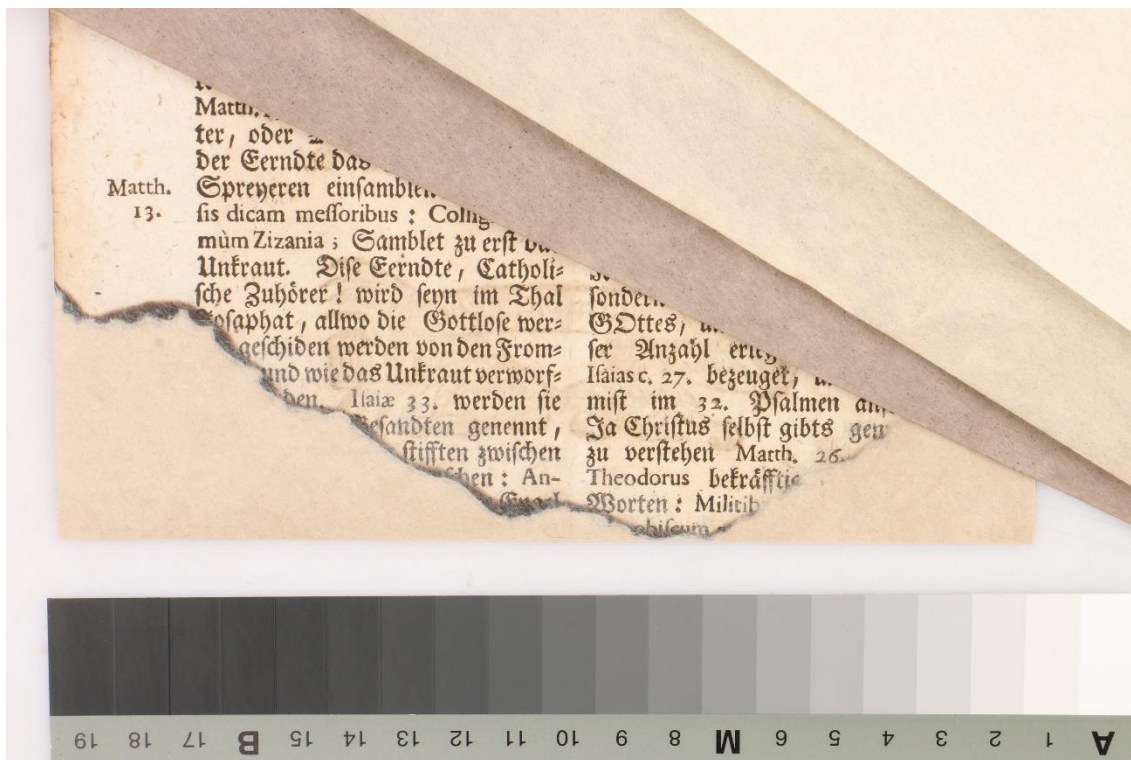 Matth.
13.
ter, oder
der Eerndte das
Spreyeren einsamblen
sis dicam messoribus : Collig
mùm Zizania ; Samblet zu erst
Unkraut. Dise Eerndte, Catholi-
sche Zuhörer ! wird seyn im Thal
Josaphat, allwo die Gottlose wer-
geschiden werden von den From-
und wie das Unkraut verworf-
den. Isaiæ 33. werden sie
Gesandten genennt,
stifften zwischen
schen : An-
Engel
sondern
GOttes,
ser Anzahl
Isaias c. 27. bezeuget,
mist im 32. Psalmen
Ja Christus selbst gibts
zu verstehen Matth. 26.
Theodorus bekräfftig
Worten : Militib
obiscum
19 18 17 B 15 14 13 12 11 10 9 8 M 6 5 4 3 2 1 A